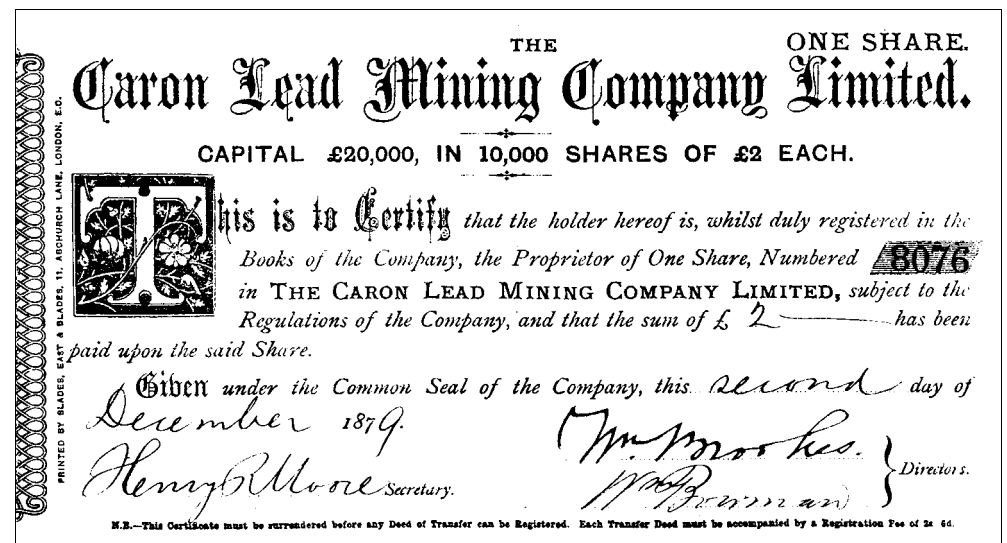 THE
ONE SHARE.
Caron Lead Mining Company Limited.
CAPITAL £20,000, IN 10,000 SHARES OF £2 EACH.
This is to Certify that the holder hereof is, whilst duly registered in the
Books of the Company, the Proprietor of One Share, Numbered 8076
in THE CARON LEAD MINING COMPANY LIMITED, subject to the
Regulations of the Company, and that the sum of £ 2 has been
paid upon the said Share.
Given under the Common Seal of the Company, this second day of
December 1879.
Wm Brookes.
Henry R Moore Secretary.
Wm Bowman
Directors.
N.B.—This Certificate must be surrendered before any Deed of Transfer can be Registered. Each Transfer Deed must be accompanied by a Registration Fee of 2s 6d.
PRINTED BY BLADES, EAST & BLADES, 11, ABCHURCH LANE, LONDON, E.C.